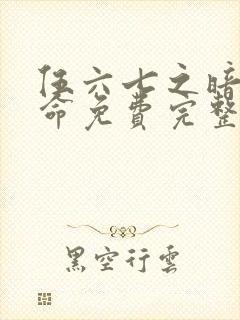 伍六七之暗
命免费完整
黑空行雲